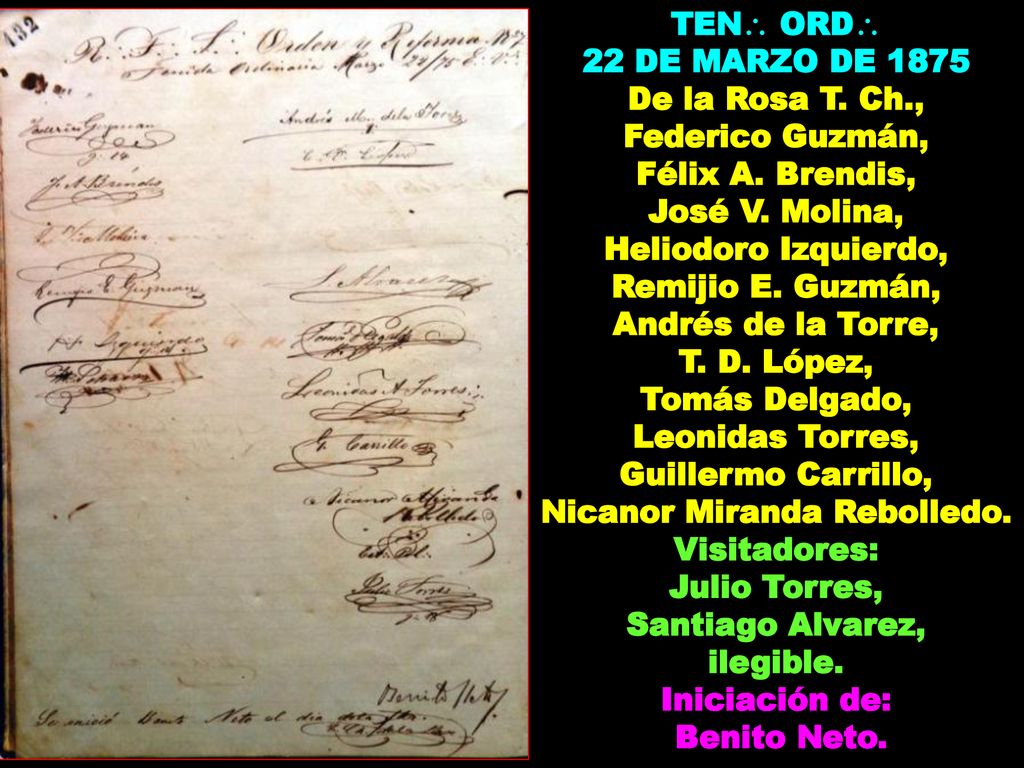 132
R∴ F∴ L∴ Orden y Reforma
Tenida Ordinaria Marzo
Federico Guzman
g∴ 18
F. A. Brendis
Remijio E. Guzman
Izquierdo
Andrés M. de la Torre
S. Alvarez
Tomás Delgado
Leonidas A. Torres
G. Carrillo
Nicanor Miranda
Rebolledo
Julio Torres
g∴ 18
Benito Neto
Se inició Benito Neto el día de la fha.
TEN∴ ORD∴
22 DE MARZO DE 1875
De la Rosa T. Ch.,
Federico Guzmán,
Félix A. Brendis,
José V. Molina,
Heliodoro Izquierdo,
Remijio E. Guzmán,
Andrés de la Torre,
T. D. López,
Tomás Delgado,
Leonidas Torres,
Guillermo Carrillo,
Nicanor Miranda Rebolledo.
Visitadores:
Julio Torres,
Santiago Alvarez,
ilegible.
Iniciación de:
Benito Neto.